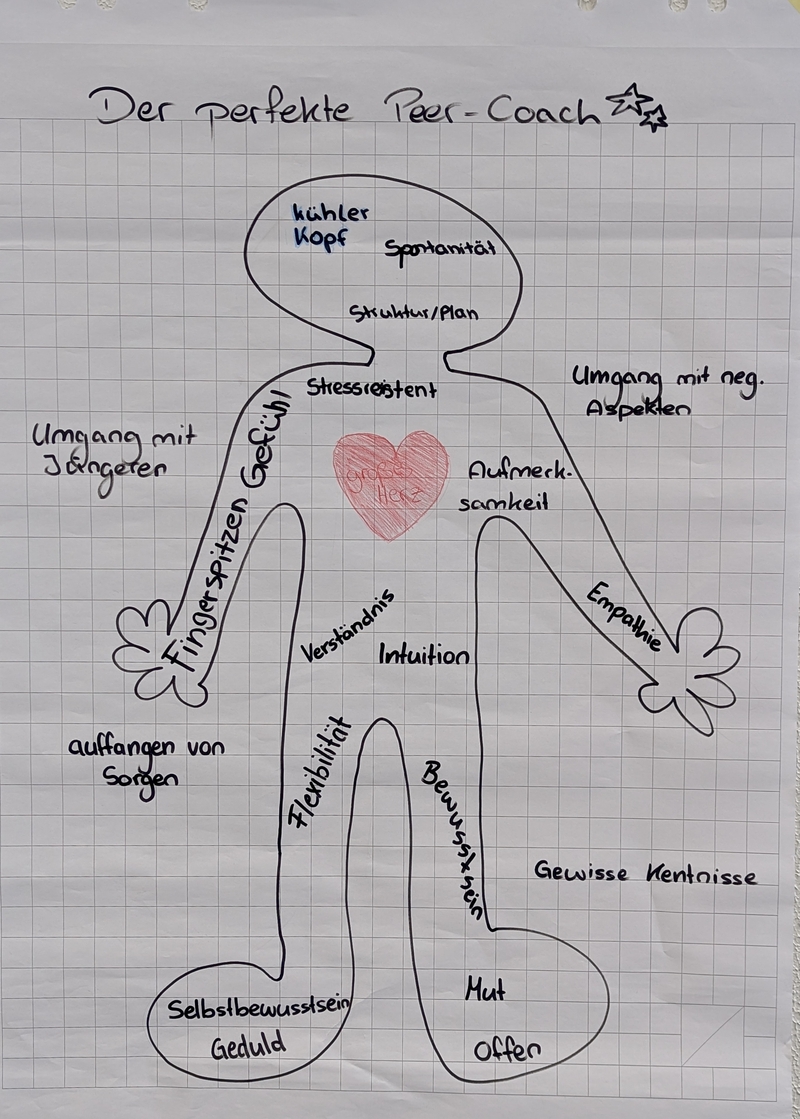 Der perfekte Peer-Coach
kühler
Kopf
Spontanität
Struktur/Plan
Stressresistent
Umgang mit neg.
Aspekten
Umgang mit
Jüngeren
Fingerspitzen Gefühl
großes
Herz
Aufmerk-
samkeit
Empathie
Verständnis
Intuition
auffangen von
Sorgen
Flexibilität
Bewusstsein
Gewisse Kentnisse
Selbstbewusstsein
Geduld
Mut
Offen